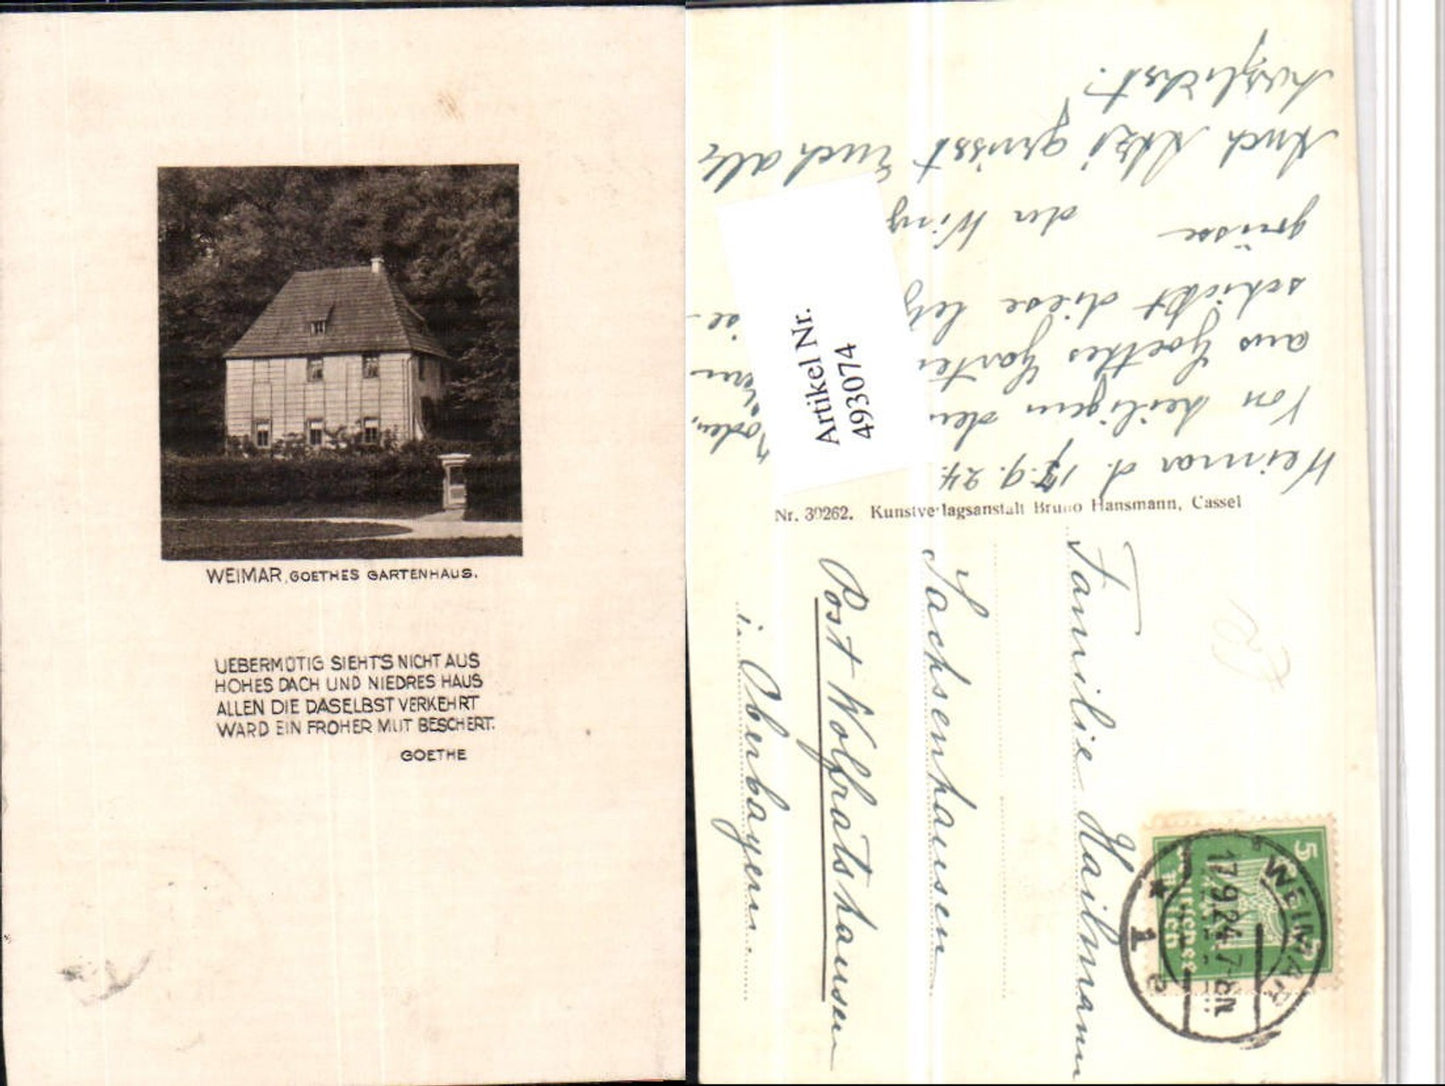 WEIMAR, GOETHES GARTENHAUS.
UEBERMÜTIG SIEHT'S NICHT AUS
HOHES DACH UND NIEDRES HAUS
ALLEN DIE DASELBST VERKEHRT
WARD EIN FROHER MUT BESCHERT.
GOETHE
Weimar d. 17.9.24.
Von heiligem
aus Goethes Garten
schickt diese
grüsse
der
Auch grüsst Euch alle
herzlichst.
Artikel Nr.
493074
Nr. 30262. Kunstverlagsanstalt Bruno Hansmann, Cassel
Familie Hailmann
Sachsenhausen
Post Wolfratshausen
in Oberbayern.
5
Deutsches Reich
WEIMAR
17.9.24.7-8N.
* 1 e